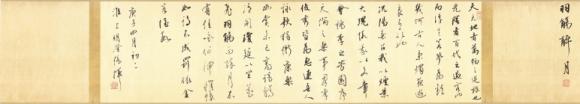 羽觴醉月
夫天地者萬物之逆旅也
光陰者百代之過客
而浮生若夢為歡
幾何古人秉燭夜遊
良有以也
況陽春召我以煙景
大塊假我以文章
會桃李之芳園序
天倫之樂事群季
俊秀皆為惠連吾人
詠歌獨慚康樂
幽賞未已高談轉
清開瓊筵以坐花
飛羽觴而醉月不
有佳作何伸雅懷
如詩不成罰依金
谷酒數
庚子四月初二